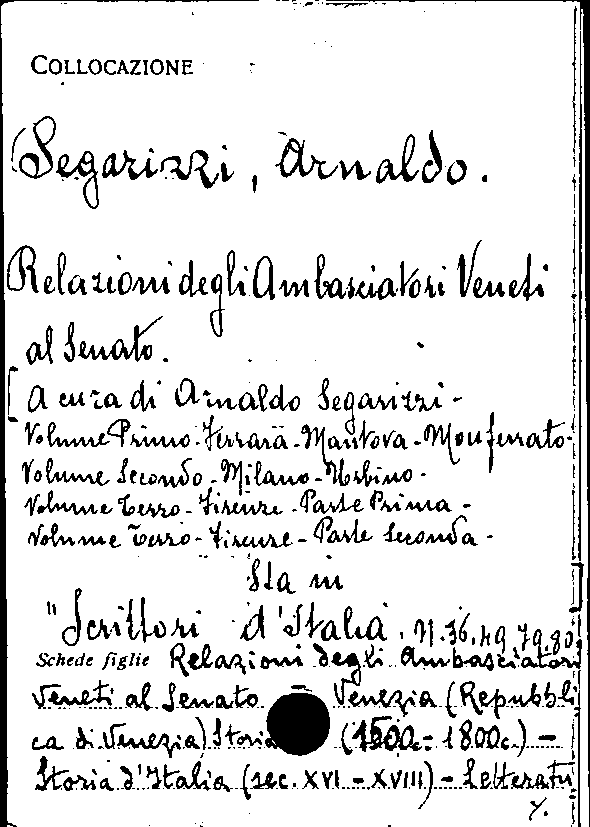 COLLOCAZIONE
Segarizzi, Arnaldo.
Relazioni degli Ambasciatori Veneti
al Senato.
A cura di Arnaldo Segarizzi -
Volume Primo - Ferrara - Mantova - Monferrato -
Volume Secondo - Milano - Urbino -
Volume Terzo - Firenze - Parte Prima -
Volume Terzo - Firenze - Parte Seconda -
Sta in
"Scrittori d'Italia. N. 36, 49, 79, 80,
Schede figlie Relazioni degli Ambasciatori
Veneti al Senato - Venezia (Repubbli
ca di Venezia) Storia (1500c. - 1800c.) -
Storia d'Italia (sec. XVI - XVIII) - Letteratu